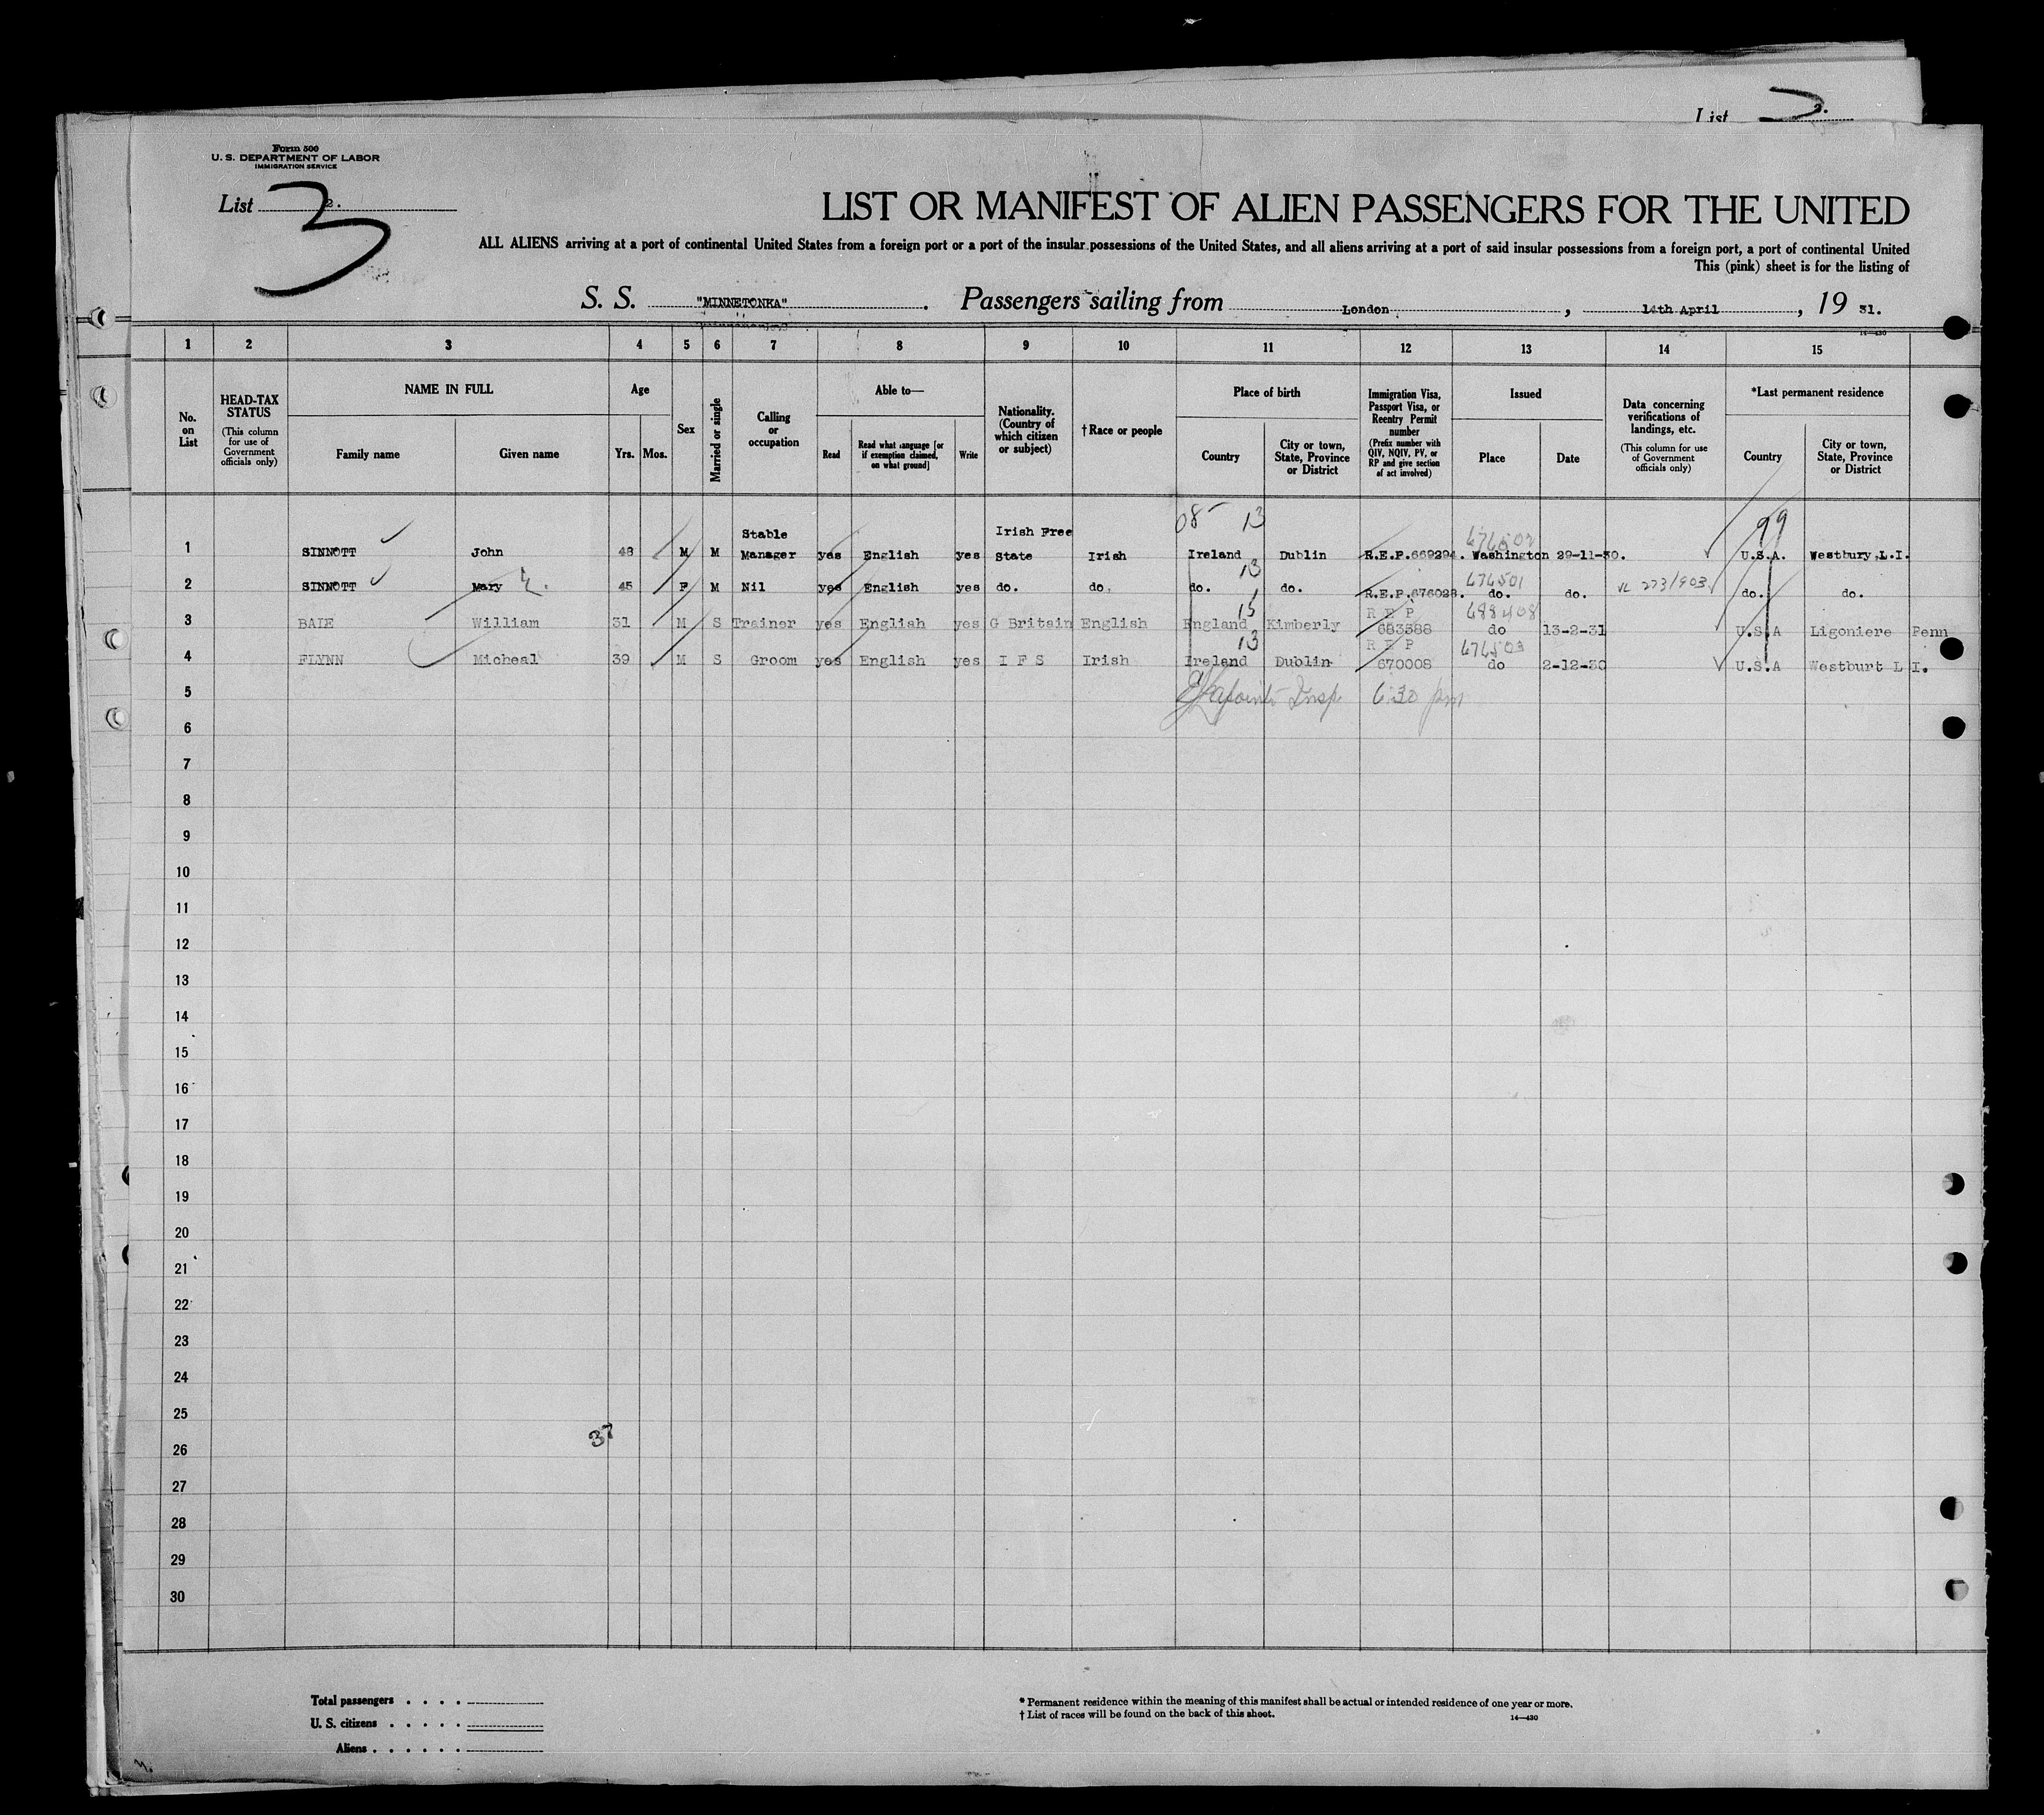 List 2.
Form 500
U. S. DEPARTMENT OF LABOR
IMMIGRATION SERVICE
List 2.
3
LIST OR MANIFEST OF ALIEN PASSENGERS FOR THE UNITED
ALL ALIENS arriving at a port of continental United States from a foreign port or a port of the insular possessions of the United States, and all aliens arriving at a port of said insular possessions from a foreign port, a port of continental United
This (pink) sheet is for the listing of
S. S. "MINNETONKA". Passengers sailing from London, 14th April, 19 31.
14—430
1 2 3 4 5 6 7 8 9 10 11 12 13 14 15
No. on List
HEAD-TAX STATUS
(This column for use of Government officials only)
NAME IN FULL
Family name Given name
Age
Yrs. Mos.
Sex
Married or single
Calling or occupation
Able to—
Read
Read what language [or if exemption claimed, on what ground]
Write
Nationality. (Country of which citizen or subject)
†Race or people
Place of birth
Country
City or town, State, Province or District
Immigration Visa, Passport Visa, or Reentry Permit number
(Prefix number with QIV, NQIV, PV, or RP and give section of act involved)
Issued
Place Date
Data concerning verifications of landings, etc.
(This column for use of Government officials only)
*Last permanent residence
Country
City or town, State, Province or District
05 13 99
1 SINNOTT John 48 M M Stable Manager yes English yes Irish Free State Irish Ireland Dublin R.E.P.669294. Washington 29-11-30. U.S.A. Westbury,L.I.
13 474501
2 SINNOTT Mary 45 F M Nil yes English yes do. do. do. do. R.E.P.676028. do. do. VL 273/903 do. do.
15 488408
3 BAIE William 31 M S Trainer yes English yes G Britain English England Kimberly R E P 683388 do 13-2-31 U.S.A Ligoniere Penn
13 474503
4 FLYNN Micheal 39 M S Groom yes English yes I F S Irish Ireland Dublin R E P 670008 do 2-12-30 U.S.A Westburt L I.
5 Insp. 6:30 pm
6
7
8
9
10
11
12
13
14
15
16
17
18
19
20
21
22
23
24
25
37
26
27
28
29
30
Total passengers
U. S. citizens
Aliens
* Permanent residence within the meaning of this manifest shall be actual or intended residence of one year or more.
† List of races will be found on the back of this sheet.
14—430